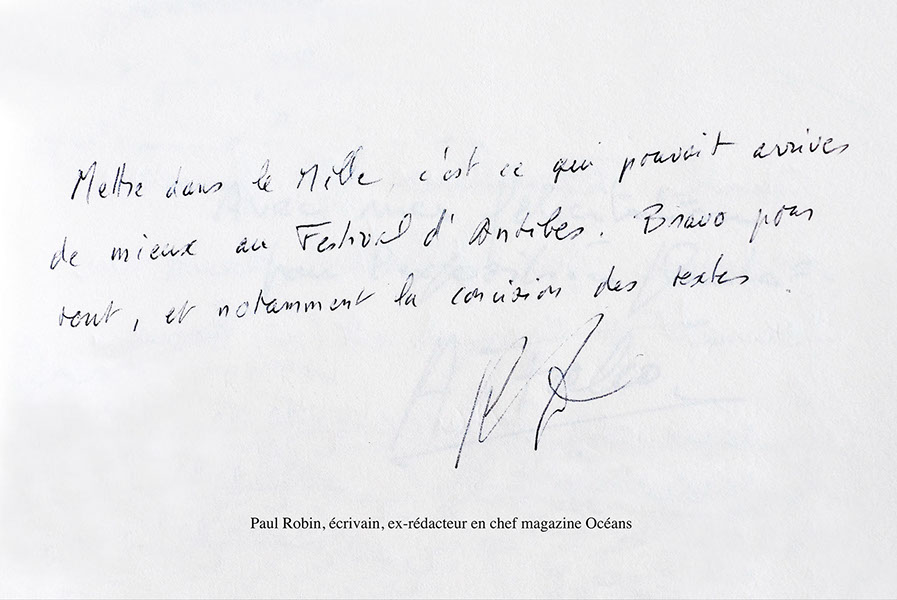 Mettre dans le Mille, c'est ce qui pouvait arriver
de mieux au Festival d'Antibes. Bravo pour
tout, et notamment la concision des textes.
Paul Robin, écrivain, ex-rédacteur en chef magazine Océans